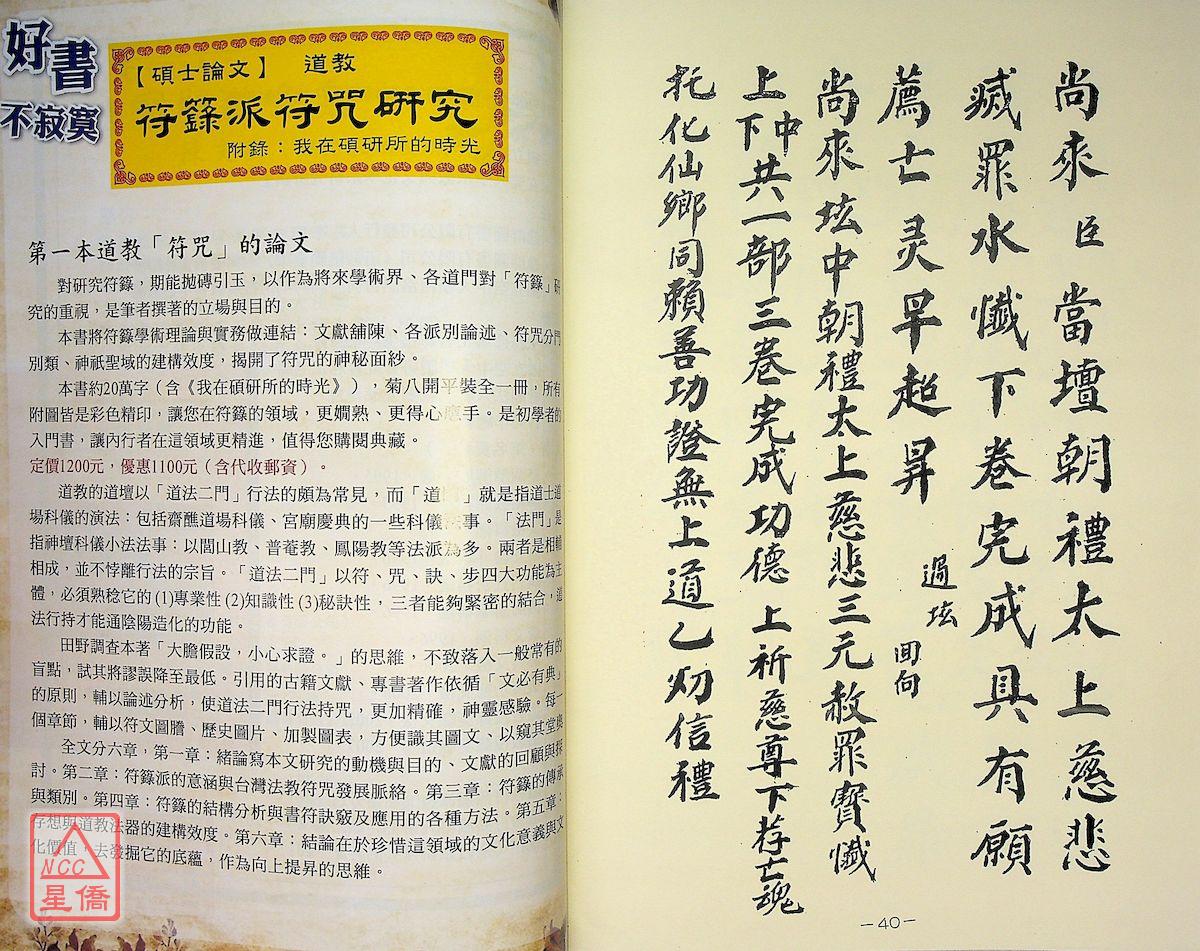 好書
不寂寞
【碩士論文】 道教
符籙派符咒研究
附錄：我在碩研所的時光
第一本道教「符咒」的論文
對研究符籙，期能拋磚引玉，以作為將來學術界、各道門對「符籙」研
究的重視，是筆者撰著的立場與目的。
本書將符籙學術理論與實務做連結：文獻舖陳、各派別論述、符咒分門
別類、神祇聖域的建構效度，揭開了符咒的神秘面紗。
本書約20萬字（含《我在碩研所的時光》），菊八開平裝全一冊，所有
附圖皆是彩色精印，讓您在符籙的領域，更嫺熟、更得心應手。是初學者的
入門書，讓內行者在這領域更精進，值得您購閱典藏。
定價1200元，優惠1100元（含代收郵資）。
道教的道壇以「道法二門」行法的頗為常見，而「道門」就是指道士道
場科儀的演法：包括齋醮道場科儀、宮廟慶典的一些科儀法事。「法門」是
指神壇科儀小法法事：以閭山教、普菴教、鳳陽教等法派為多。兩者是相輔
相成，並不悖離行法的宗旨。「道法二門」以符、咒、訣、步四大功能為主
體，必須熟稔它的(1)專業性(2)知識性(3)秘訣性，三者能夠緊密的結合，道
法行持才能通陰陽造化的功能。
田野調查本著「大膽假設，小心求證。」的思維，不致落入一般常有的
盲點，試其將謬誤降至最低。引用的古籍文獻、專書著作依循「文必有典」
的原則，輔以論述分析，使道法二門行法持咒，更加精確，神靈感驗。每一
個章節，輔以符文圖謄、歷史圖片、加製圖表，方便識其圖文、以窺其堂奧
全文分六章，第一章：緒論寫本文研究的動機與目的、文獻的回顧與探
討。第二章：符籙派的意涵與台灣法教符咒發展脈絡。第三章：符籙的傳承
與類別。第四章：符籙的結構分析與書符訣竅及應用的各種方法。第五章：
存想與道教法器的建構效度。第六章：結論在於珍惜這領域的文化意義與文
化價值，去發掘它的底蘊，作為向上提昇的思維。
NCC
星僑
尚來 臣 當壇朝禮太上慈悲
滅罪水懺下卷完成具有願
薦亡灵早超昇 過坛 回向
尚來坛中朝禮太上慈悲三元赦罪寶懺
上中下共一部三卷完成功德 上祈慈尊下荐亡魂
托化仙鄉同賴善功證無上道乙切信禮
-40-